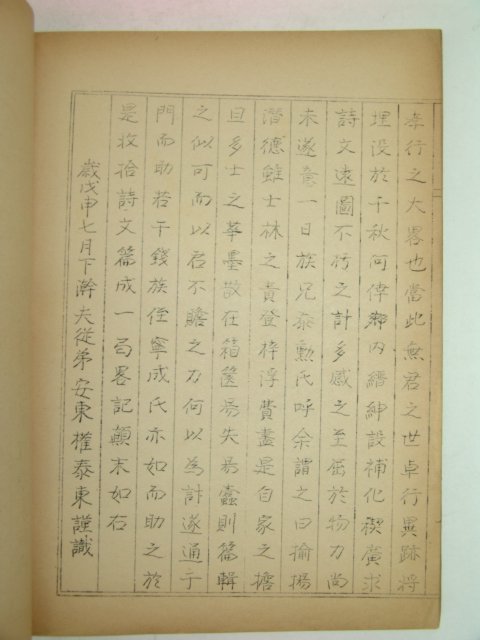 孝行之大畧也當此無君之世卓行異跡將
埋没於千秋何倖鄉内縉紳設補化稧廣求
詩文遠圖不朽之計多感之至屈於物力尚
未遂意一日族兄泰勳氏呼余謂之曰揄揚
潛德雖士林之責登梓浮費盡是自家之擔
且多士之華墨散在箱篋易失易蠹則篇輯
之似可而以君不贍之力何以為計遂通于
門而助若干錢族侄寧成氏亦如而助之於
是收拾詩文篇成一局畧記顛末如右
歲戊申七月下澣夫從弟安東權泰東謹識